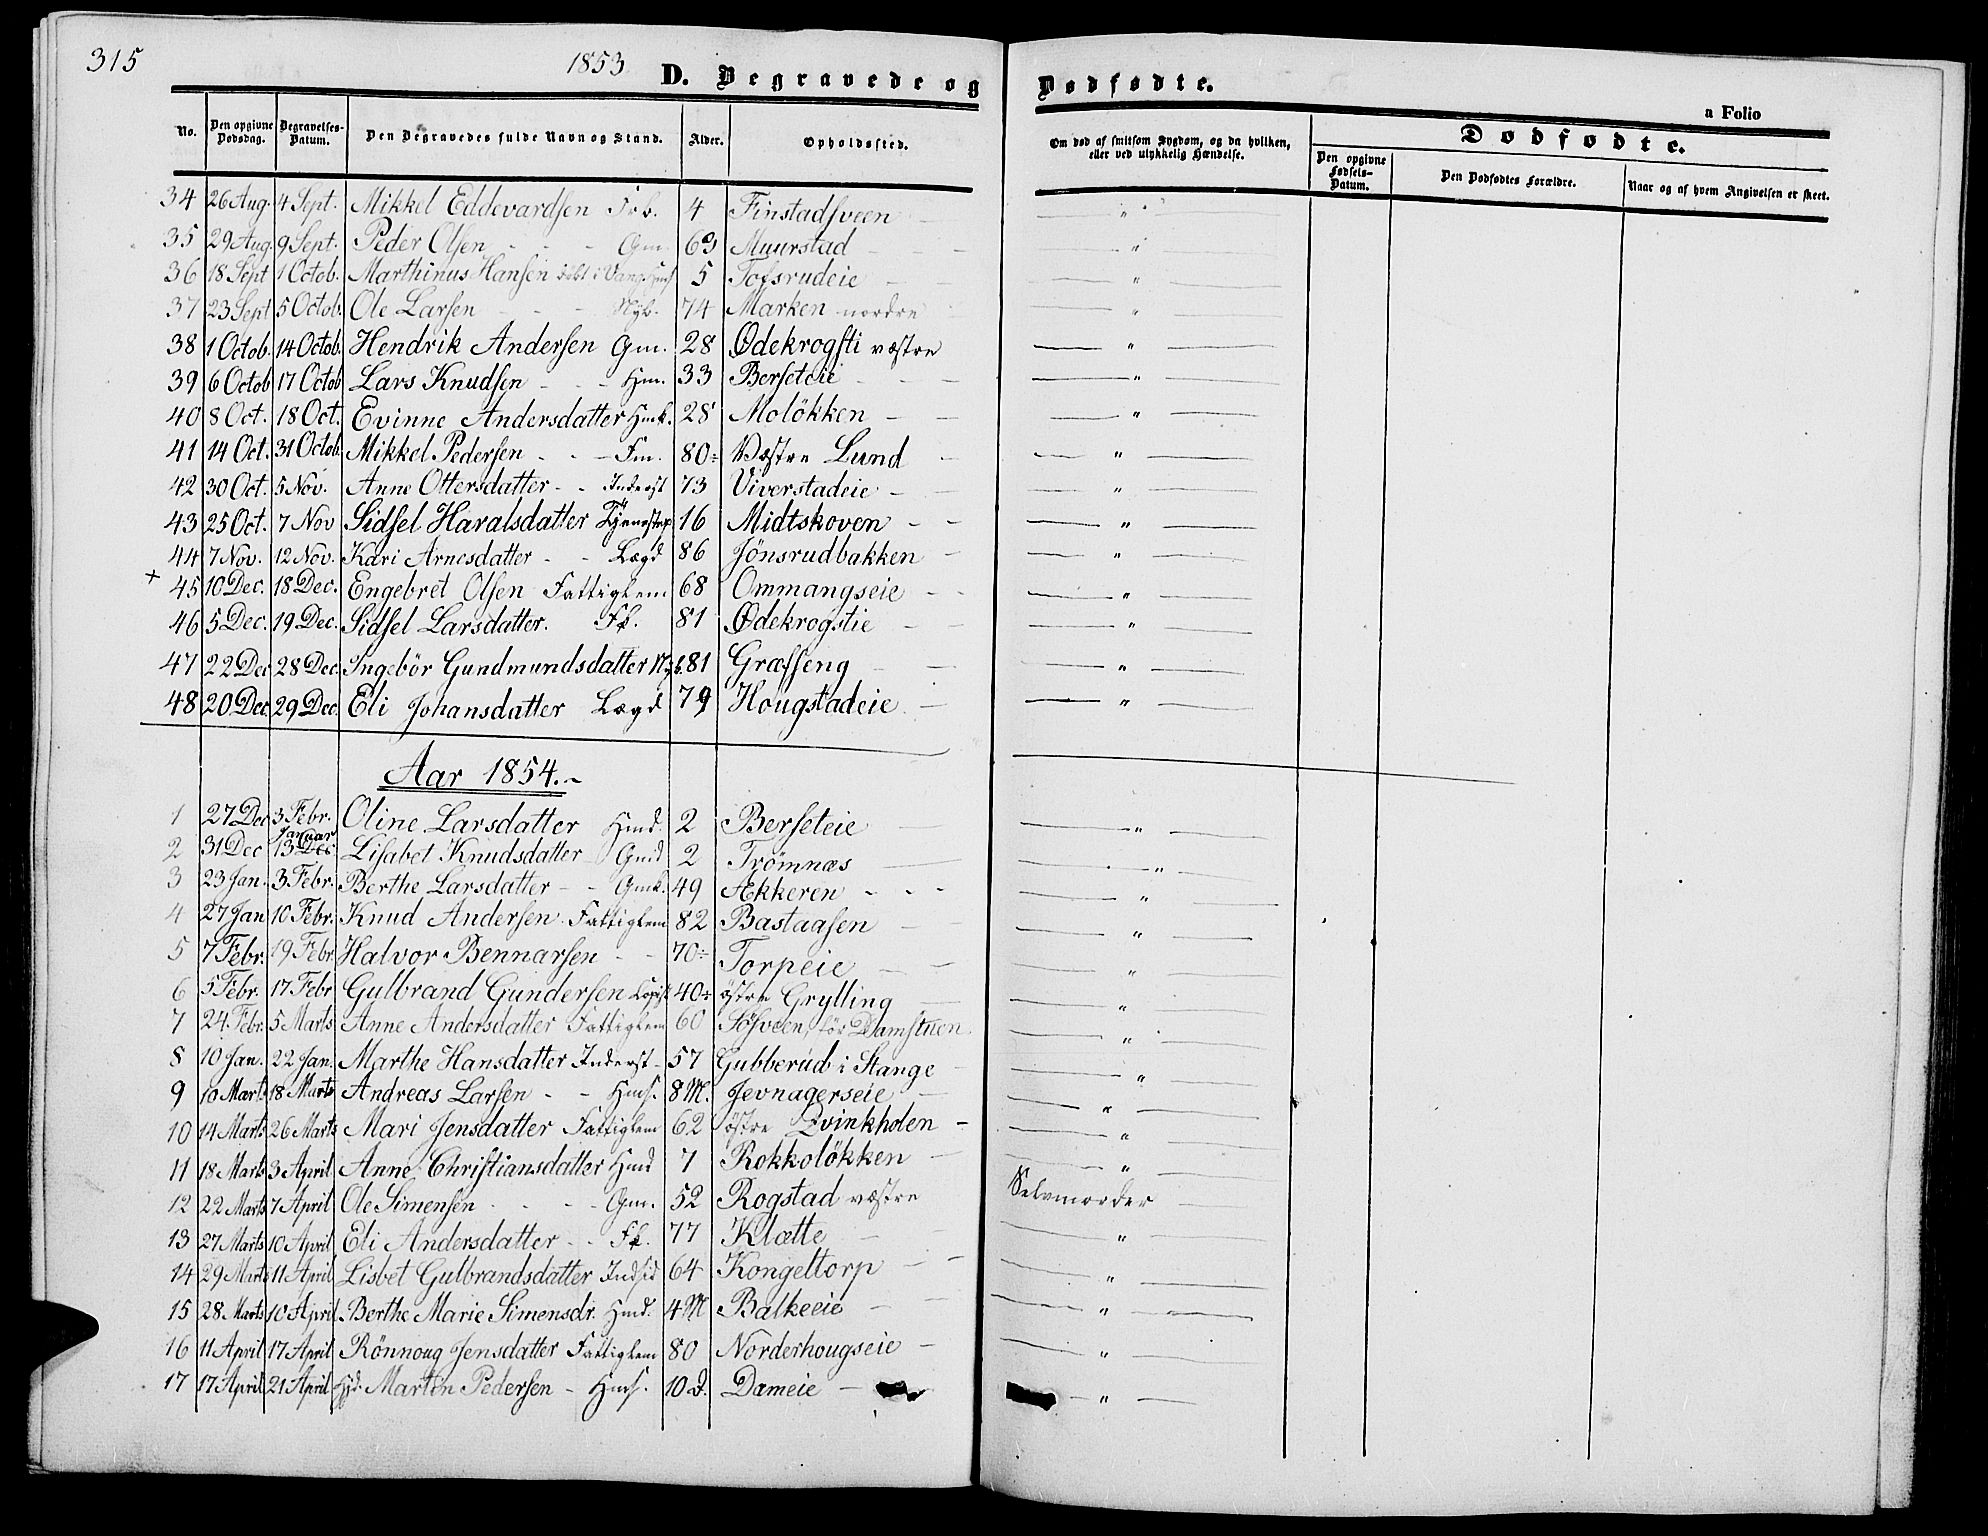 315
1853
D. Begravede og Dødfødte.
a Folio
No. Den opgivne Dødsdag. Begravelses-Datum. Den Begravedes fulde Navn og Stand. Alder. Opholdssted. Om død af smitsom Sygdom, og da hvilken, eller ved ulykkelig Hændelse. Dødfødte.
Den opgivne Fødsels-Datum. Den Dødfødtes Forældre. Naar og af hvem Angivelsen er skeet.
34 26 Aug. 4 Sept. Mikkel Eddevardsen 4 Finstadsveen - "
35 29 Aug. 9 Sept. Peder Olsen - - - Gm. 63 Muurstad - "
36 18 Sept 1 Octob. Marthinus Hansen født i Vang 5 Tofsrudeie - "
37 23 Sept 5 Octob. Ole Larsen - - - Nyb. 74 Marken nordre "
38 1 Octob. 14 Octob. Hendrik Andersen Gm. 28 Ødekrogsti væstre "
39 6 Octob 17 Octob Lars Knudsen - - - Hm. 33 Berseteie - "
40 8 Oct. 18 Oct. Evinne Andersdatter Hmk. 28 Moløkken - "
41 14 Oct. 31 Octob. Mikkel Pedersen - - - Fm. 80 Væstre Lund - "
42 30 Oct. 5 Nov. Anne Ottersdatter - - Inderst 73 Viverstadeie - "
43 25 Oct. 7 Nov Sidsel Haralsdatter Tjenestep 16 Midtskoven - "
44 7 Nov. 12 Nov. Kari Arnesdatter - - Lægd 86 Jönsrudbakken - "
+ 45 10 Dec. 18 Dec. Engebret Olsen Fattiglem 68 Ommangseie - "
46 5 Dec. 19 Dec. Sidsel Larsdatter. Fk. 81 Ødekrogstie - "
47 22 Dec 28 Dec. Ingebör Gundmundsdatter 81 Græsseng - "
48 20 Dec. 29 Dec. Eli Johansdatter Lægd 79 Hougstadeie - "
Aar 1854.
1 27 Dec 3 Febr. Oline Larsdatter Hmd. 2 Berseteie - "
2 31 Dec 13 Dec Januar Lisabet Knudsdatter Gmd 2 Trömnæs - "
3 23 Jan. 3 Febr. Berthe Larsdatter - - Gmk. 49 Ækkeren - - - "
4 27 Jan 10 Febr. Knud Andersen Fattiglem 82 Bastaasen - "
5 7 Febr. 19 Febr. Halvor Bennarsen - - 70 Torpeie - "
6 5 Febr. 17 Febr Gulbrand Gundersen 40 östre Grylling "
7 24 Febr. 5 Marts Anne Andersdatter Fattiglem 60 Damstuen "
8 10 Jan. 22 Jan. Marthe Hansdatter Inderst - 57 Gubberud i Stange "
9 10 Marts 18 Marts Andreas Larsen - - Hms. 8 M. Jevnagerseie "
10 14 Marts 26 Marts Mari Jensdatter Fattiglem 62 östre Qvinkholen - "
11 18 Marts 3 April Anne Christiansdatter Hmd 7 Rokkoløkken "
12 22 Marts 7 April Ole Simensen - - - - Gm. 52 Rogstad væstre Selvmorder
13 27 Marts 10 April Eli Andersdatter - - Fk. 77 Klætte - "
14 29 Marts 11 April Lisbet Gulbrandsdatter 64 Kongeltorp - "
15 28 Marts 10 April Berthe Marie Simensdr. Hmd. 4 M Balkeeie - "
16 11 April 17 April Rönnoug Jensdatter Fattiglem 80 Norderhougseie - "
17 17 April 21 April Hjd. Martin Pedersen - Hms. 10 D. Dameie - "